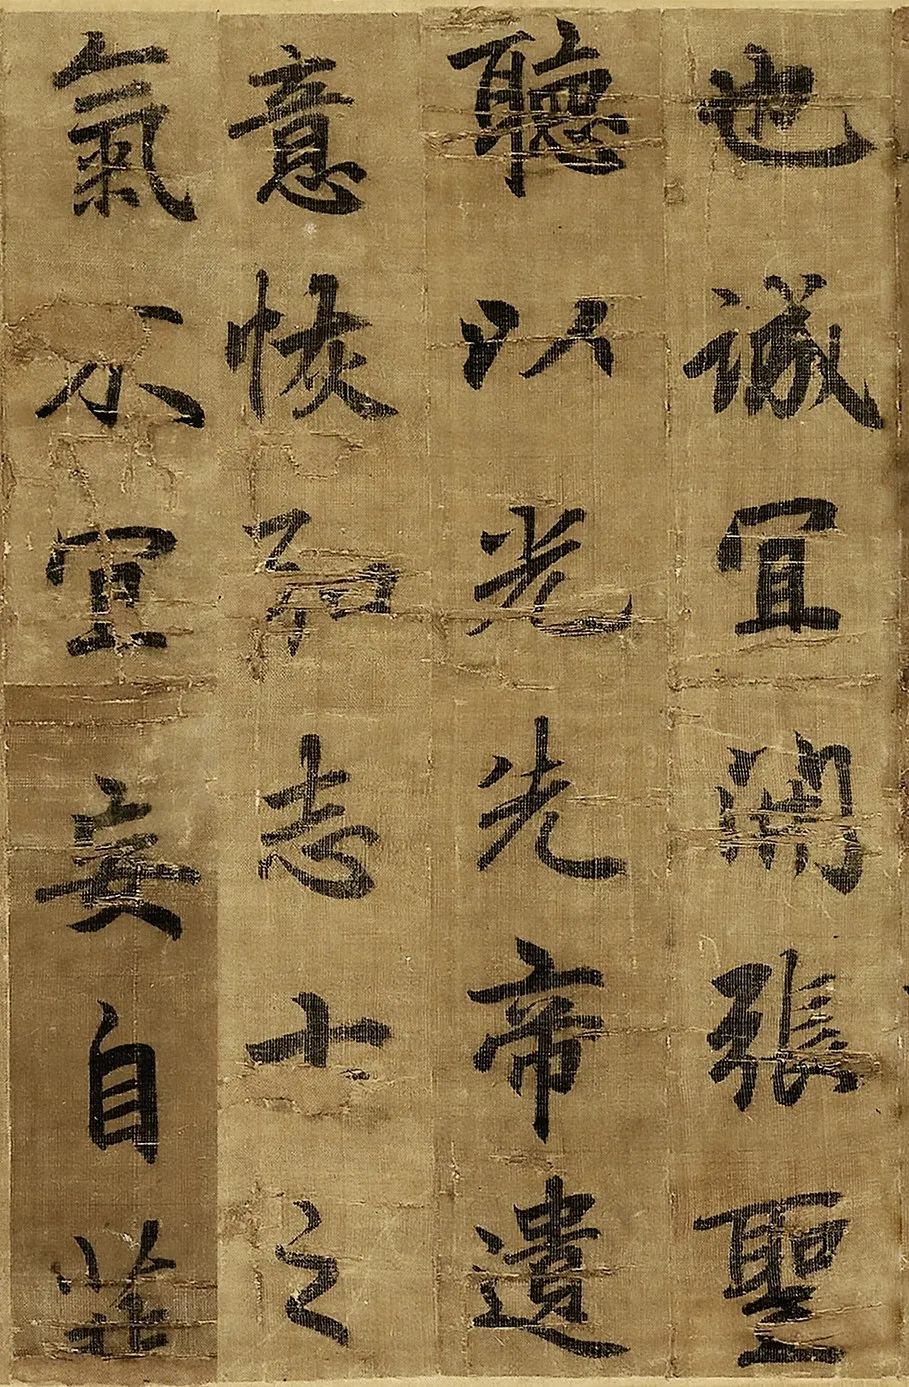 也誠宜開張聖
聽以光先帝遺
意恢弘志士之
氣不宜妄自菲